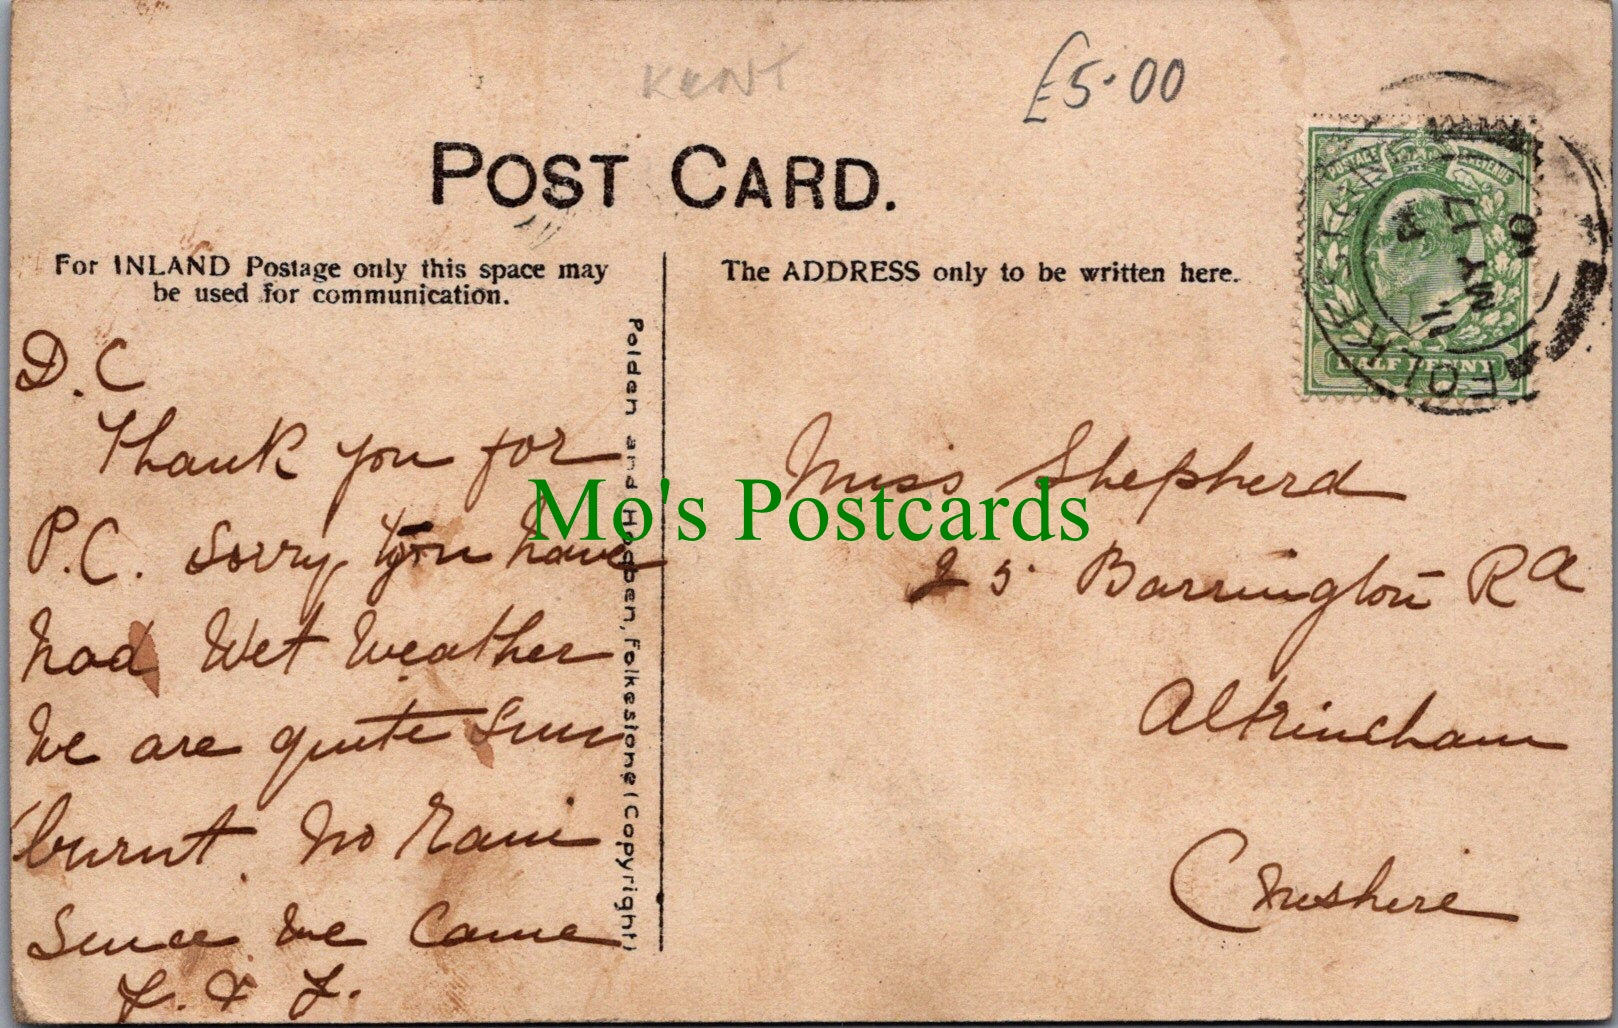 KENT
£5.00
POST CARD.
For INLAND Postage only this space may
be used for communication.
The ADDRESS only to be written here.
FOLKESTONE
MY 17
10
D.C
Thank you for
P.C. Sorry you have
had Wet Weather
We are quite Sun
burnt. No Rain
Since We Came
Polden and Hogben, Folkestone (Copyright)
Miss Shepherd
25 Barrington Rd
Altrincham
Cheshire
POSTAGE
HALF PENNY
Mo's Postcards